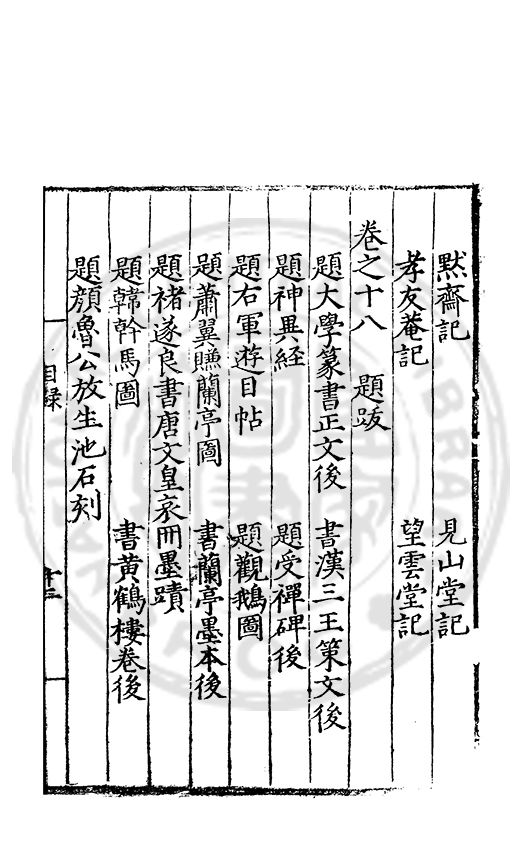 默齋記　見山堂記
孝友菴記　望雲堂記
卷之十八　題跋
題大學篆書正文後　書漢三王策文後
題神異経　題受禪碑後
題右軍遊目帖　題觀鵝圖
題蕭翼賺蘭亭圖　書蘭亭墨本後
題褚遂良書唐文皇哀冊墨蹟
題韓幹馬圖　書黃鶴樓卷後
題顔魯公放生池石刻
目録
十三